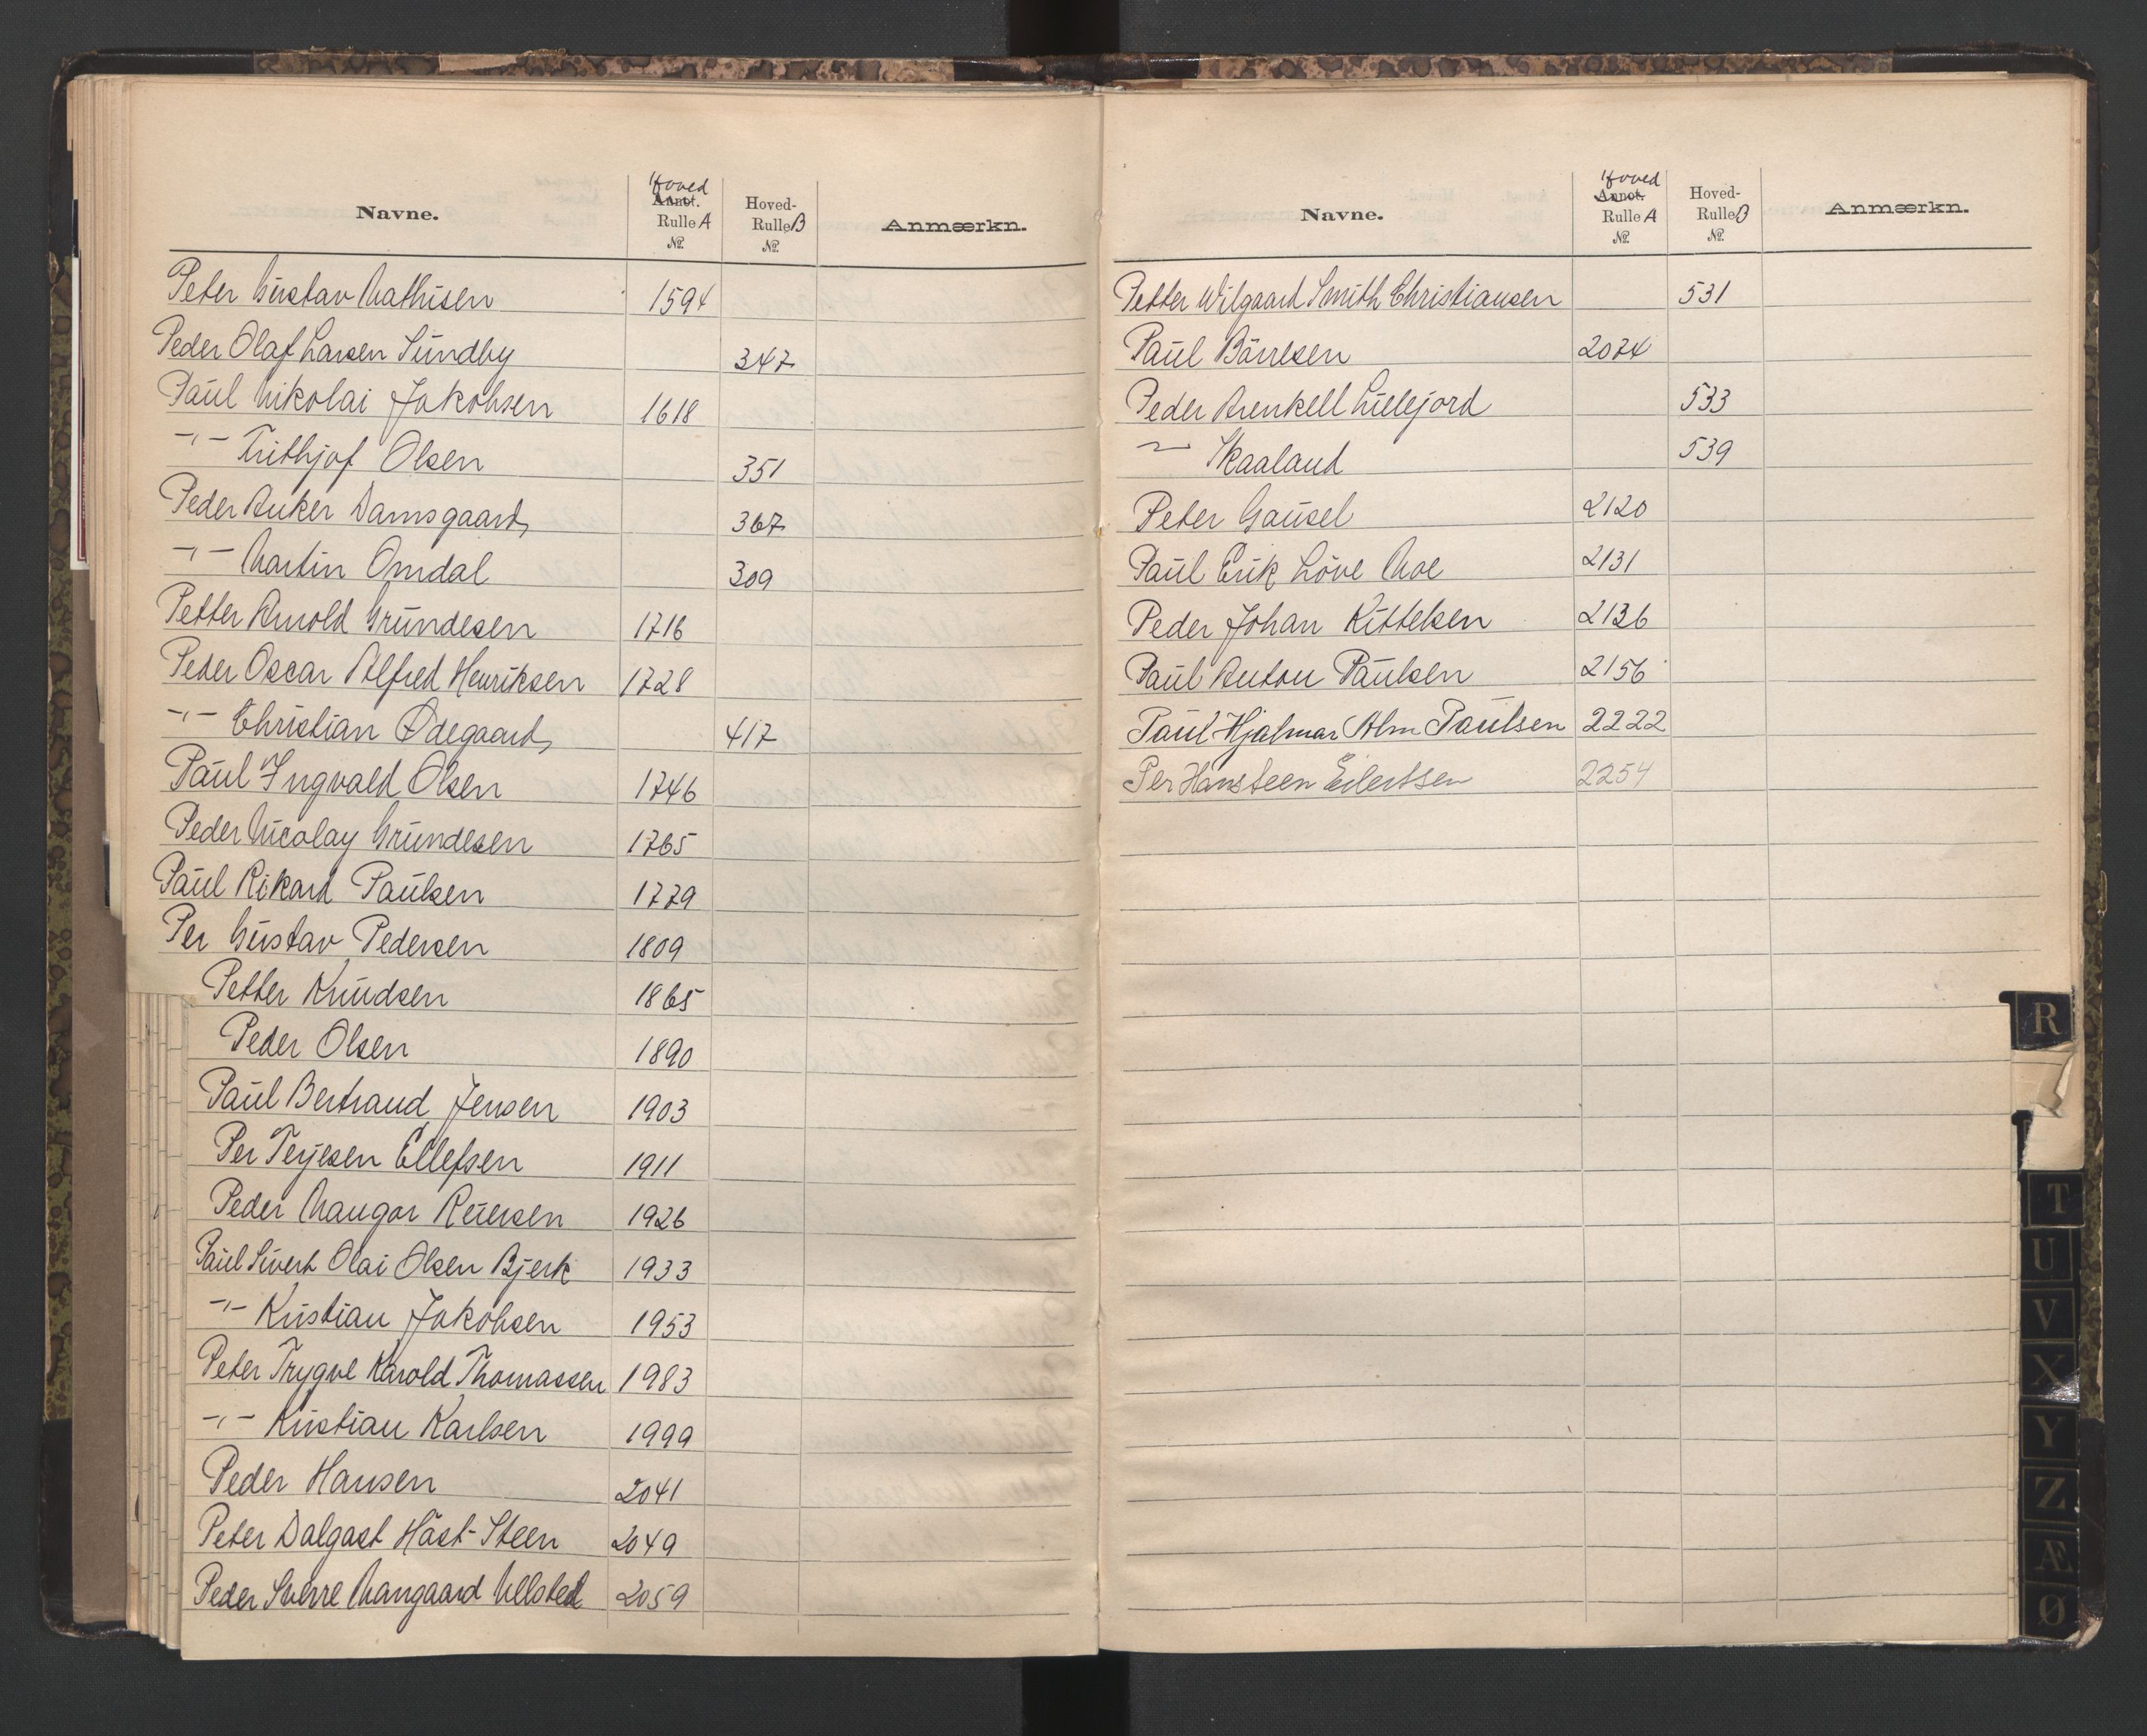 Navne. Hoved Annot. Rulle A № Hoved-Rulle B № Anmærkn.
Peter Gustav Mathisen 1594
Peder Olaf Larsen Sundby 347
Paul Nikolai Jakobsen 1618
-"- Frithjof Olsen 351
Peder Anker Damsgaard 367
-"- Martin Omdal 309
Petter Arnold Grundesen 1716
Peder Oscar Alfred Henriksen 1728
-"- Christian Ødegaard 417
Paul Ingvald Olsen 1746
Peder Nicolay Grundesen 1765
Paul Rikard Paulsen 1779
Per Gustav Pedersen 1809
Petter Knudsen 1865
Peder Olsen 1890
Paul Bertrand Jensen 1903
Per Terjesen Ellefsen 1911
Peder Mangor Reiersen 1926
Paul Sivert Olai Olsen Bjerk 1933
-"- Kristian Jakobsen 1953
Peter Trygve Harold Thomassen 1983
-"- Kristian Karlsen 1999
Peder Hansen 2041
Peter Dalgast Häst-Steen 2049
Peder Sverre Mangaard Ullsted 2059
Navne. Hoved Annot. Rulle A № Hoved-Rulle B № Anmærkn.
Petter Wilgaard Smith Christiansen 531
Paul Börresen 2074
Peder Arenkell Lillejord 533
" Skaaland 539
Peter Gausel 2120
Paul Erik Löve Moe 2131
Peder Johan Kittelsen 2136
Paul Anton Paulsen 2156
Paul Hjalmar Alm Paulsen 2222
Per Hansteen Eilertsen 2254
R
T
U
V
X
Y
Z
Æ
Ø